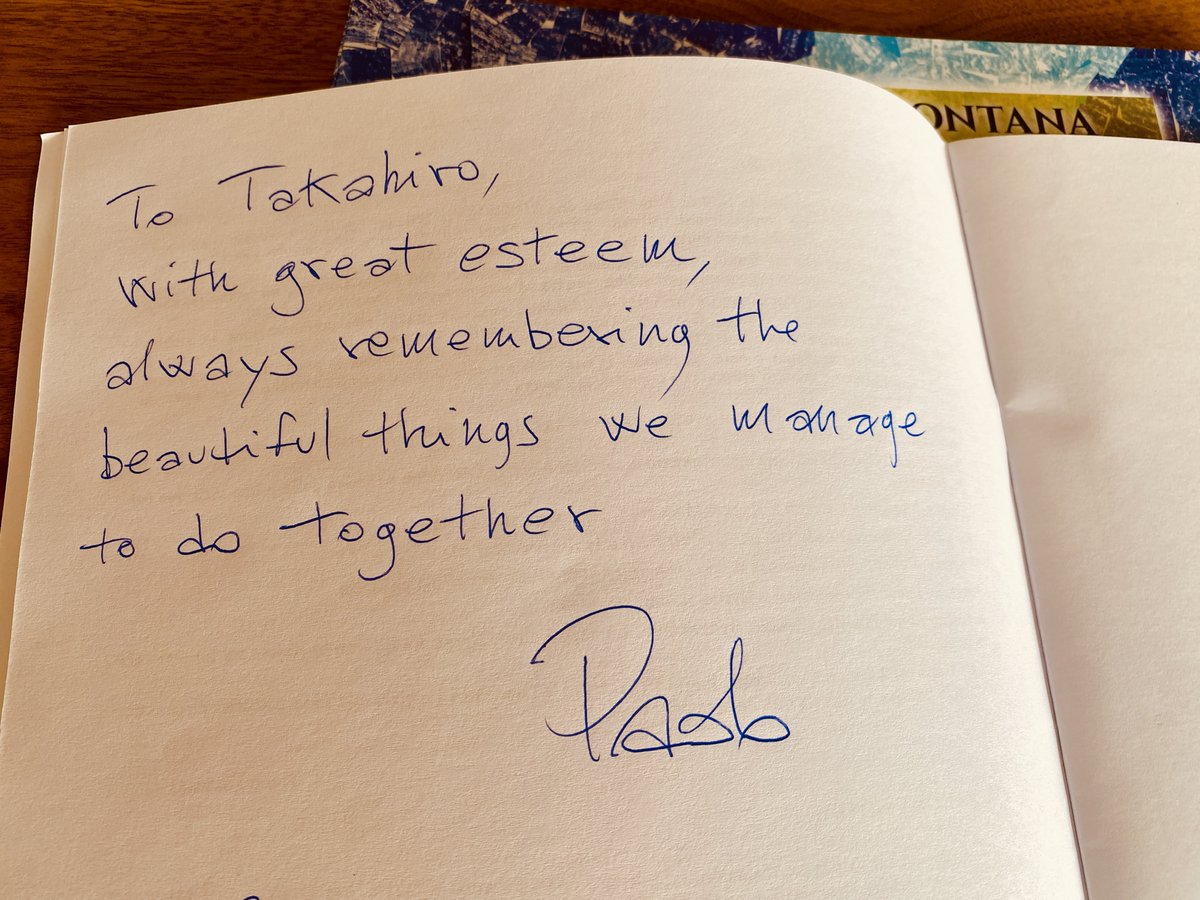 ONTANA
To Takahiro,
with great esteem,
always remembering the
beautiful things we manage
to do together
Paolo